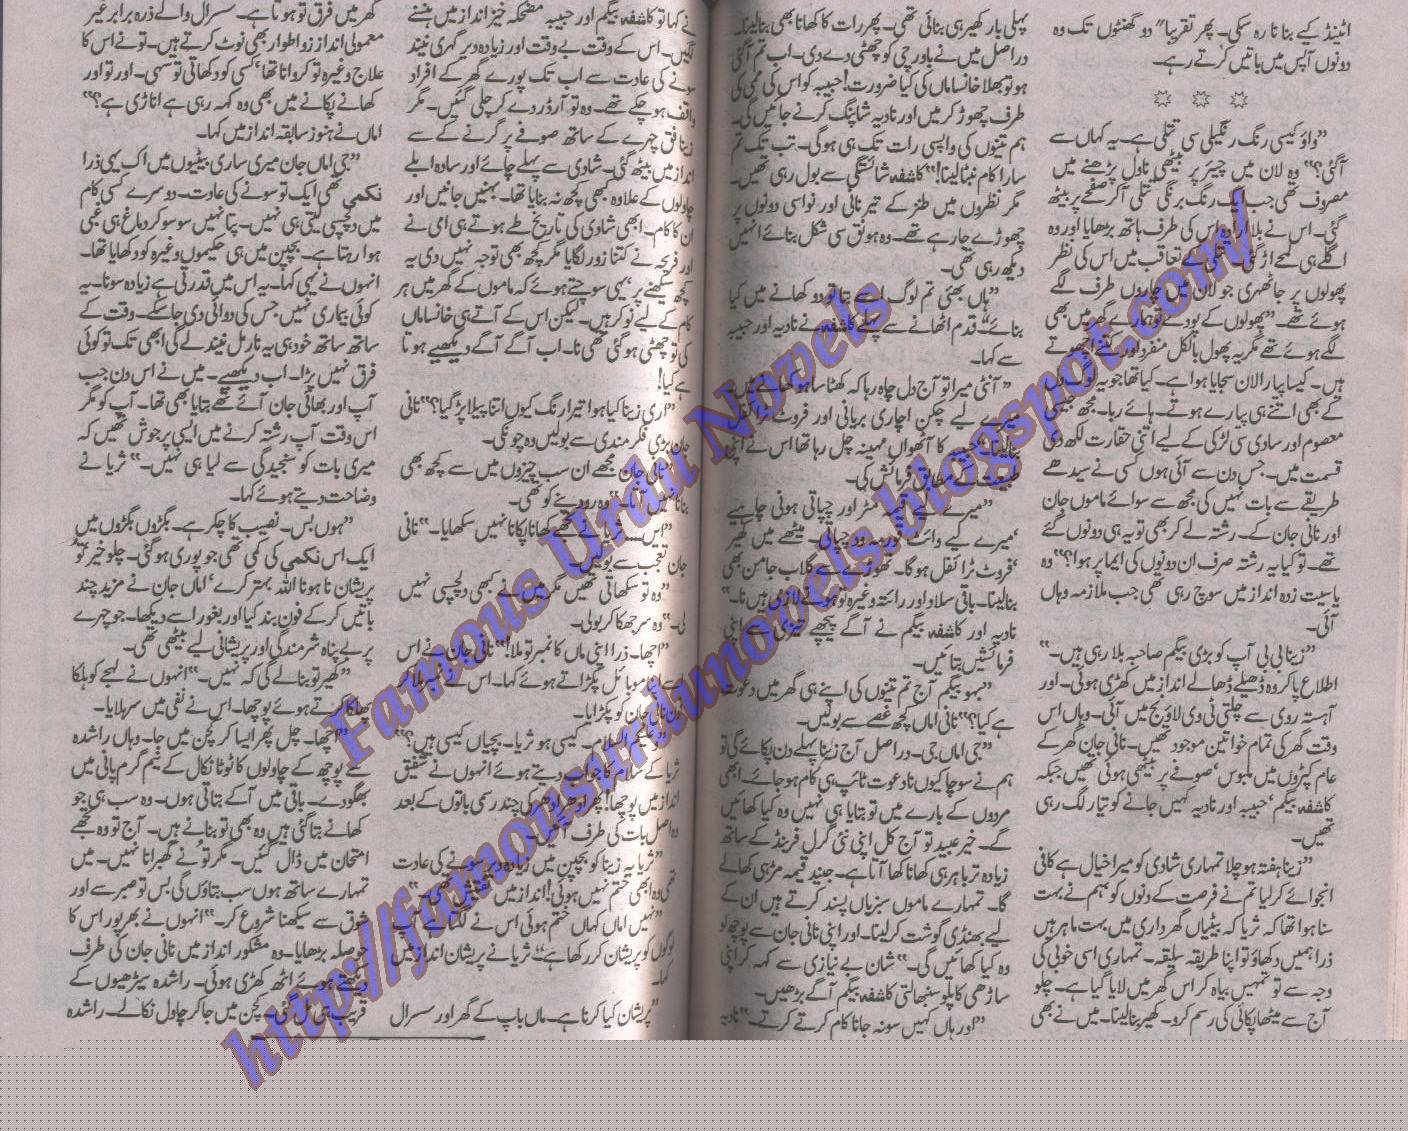 اٹینڈ کیے بنا نا رہ سکی۔ پھر تقریبا" دو گھنٹوں تک وہ
دونوں آپس میں باتیں کرتے رہے۔
"واؤ کیسی رنگ رنگیلی سی تتلی ہے۔ یہ کہاں سے
آگئی؟" وہ لان میں چیئر پر بیٹھی ناول پڑھنے میں
مصروف تھی جب ایک رنگ برنگی تتلی آکر صفحے پر بیٹھ
گئی۔ اس نے بلا ارادہ اس کی طرف ہاتھ بڑھایا اور وہ
اگلے ہی لمحے اڑ گئی۔ تتلی کے تعاقب میں اس کی نظر
پھولوں پر جا ٹھہری جو لان میں چاروں طرف لگے
ہوئے تھے۔ "پھولوں کے پودے تو ہمارے گھر میں بھی
لگے ہوئے تھے مگر یہ پھول بالکل منفرد اور کتنے اچھوتے
ہیں۔ کیسا پیارا لان سجایا ہوا ہے۔ کیا تھا جو یہ لوگ دل
کے بھی اتنے ہی پیارے ہوتے۔ ہائے ربا۔ مجھ جیسی
معصوم اور سادی سی لڑکی کے لیے اتنی حقارت لکھ دی
قسمت میں۔ جس دن سے آئی ہوں کسی نے سیدھے
طریقے سے بات نہیں کی مجھ سے سوائے ماموں جان
اور نانی جان کے۔ رشتہ لے کر بھی تو یہ ہی دونوں گئے
تھے۔ تو کیا یہ رشتہ صرف ان دونوں کی ایما پر ہوا؟" وہ
یاسیت زدہ انداز میں سوچ رہی تھی جب ملازمہ وہاں
آئی۔
"زینا بی بی آپ کو بڑی بیگم صاحبہ بلا رہی ہیں۔"
اطلاع پا کر وہ ڈھیلے ڈھالے انداز میں کھڑی ہوئی۔ اور
آہستہ روی سے چلتی ٹی وی لاؤنج میں آئی۔ وہاں اس
وقت گھر کی تمام خواتین موجود تھیں۔ نانی جان گھر کے
عام کپڑوں میں ملبوس، صوفے پر بیٹھی ہوئی تھیں جبکہ
کاشفہ بیگم، حبیبہ اور نادیہ کہیں جانے کو تیار لگ رہی
تھیں۔
"زینا ہفتہ ہو چلا تمہاری شادی کو میرا خیال ہے کافی
انجوائے کر لیا تم نے فرصت کے دنوں کو، ہم نے بہت
سنا ہوا تھا کہ ثریا کہ بیٹیاں گھر داری میں بہت ماہر ہیں
ذرا ہمیں دکھاؤ تو اپنا طریقہ سلیقہ۔ تمہاری اسی خوبی کی
وجہ سے تو تمہیں بیاہ کر اس گھر میں لایا گیا ہے۔ چلو
آج سے میٹھا پکائی کی رسم کرو۔ کھیر بنالینا۔ میں نے بھی
پہلی بار کھیر ہی بنائی تھی۔ پھر رات کا کھانا بھی بنا لینا۔
دراصل میں نے باورچی کو چھٹی دے دی۔ اب تم آگئی
ہو تو بھلا خانساماں کی کیا ضرورت! حبیبہ کو اس کی ممی کی
طرف چھوڑ کر میں اور نادیہ شاپنگ کرنے جائیں گی۔
ہم تینوں کی واپسی رات تک ہی ہوگی۔ تب تک تم
سارا کام نپٹا لینا!" کاشفہ شائستگی سے بول رہی تھیں۔
مگر نظروں میں طنز کے تیر نانی اور نواسی دونوں پر
چھوڑے جا رہے تھے۔ وہ ہونق سی شکل بنائے انہیں
دیکھ رہی تھی۔
"ہاں بھئی تم لوگ اسے بتا تو دو کھانے میں کیا
بنائے" قدم اٹھانے سے پہلے کاشفہ نے نادیہ اور حبیبہ
سے کہا۔
"آنٹی میرا تو آج دل چاہ رہا کہ کھٹا سا ہو کھانے میں۔
میرے لیے چکن اچاری بریانی اور فروٹ ٹرائفل
بنا لینا" حبیبہ کا آٹھواں مہینہ چل رہا تھا اس نے اپنی
طبیعت کے مطابق فرمائش کی۔
"میرے لیے مٹر اور چپاتی ہونی چاہیے
میرے لیے وائٹ قورمہ ود چپاتی۔ میٹھے میں کھیر
، فروٹ ٹرائفل ہو گا۔ تھوڑے سے گلاب جامن بھی
بنا لینا۔ باقی سلاد اور رائتہ وغیرہ تو ہونے لازمی ہیں نا۔"
نادیہ اور کاشفہ بیگم نے آگے پیچھے اپنی اپنی
فرمائشیں بتائیں۔
"بہو بیگم آج تم تینوں کی اپنے ہی گھر میں دعوت
ہے کیا؟" نانی اماں کچھ غصے سے بولیں۔
"جی اماں جی۔ دراصل آج زینا پہلے دن پکائے گی تو
ہم نے سوچا کیوں نا دعوت ٹائپ ہی کام ہو جائے۔ ابھی
مردوں کے بارے میں تو بتایا ہی نہیں وہ کیا کھائیں
گے۔ خیر عبید تو آج کل اپنی نئی گرل فرینڈ کے ساتھ
زیادہ تر باہر ہی کھانا کھا آتا ہے۔ جنید قیمہ مٹر ہی کھالے
گا۔ تمہارے ماموں سبزیاں پسند کرتے ہیں ان کے
لیے بھنڈی گوشت کر لینا۔ اور اپنی نانی جان سے پوچھ لو
وہ کیا کھائیں گی۔" شان بے نیازی سے کہہ کر اپنی
ساڑھی کا پلو سنبھالتی کاشفہ بیگم آگے بڑھیں۔
"اور ہاں کہیں سونہ جانا کام کرتے کرتے۔" نادیہ
نے کہا تو کاشفہ بیگم اور حبیبہ مضحکہ خیز انداز میں ہنسنے
لگیں۔ اس کے وقت بے وقت اور زیادہ دیر گہری نیند
سونے کی عادت سے اب تک پورے گھر کے افراد
واقف ہو چکے تھے۔ وہ تو آرڈر دے کر چلی گئیں۔ مگر
زینا فق چہرے کے ساتھ صوفے پر گرنے کے سے
انداز میں بیٹھ گئی۔ شادی سے پہلے چائے اور سادہ ابلے
چاولوں کے علاوہ کبھی کچھ نہ بنایا تھا۔ بہنیں جانیں اور
ان کا کام۔ ابھی شادی کی تاریخ طے ہوتے ہی امی نے
اور فریحہ نے کتنا زور لگایا مگر کچھ بھی توجہ نہیں دی یہ
کچھ سیکھنے پر، یہی سوچتے ہوئے کہ ماموں کے گھر میں ہر
کام کے لیے نوکر ہیں۔ لیکن اس کے آتے ہی خانساماں
کی تو چھٹی ہوگئی تھی نا۔ اب آگے آگے دیکھیے ہوتا
ہے کیا!
"اری زینا کیا ہوا تیرا رنگ کیوں اتنا پیلا پڑ گیا؟" نانی
جان بڑی فکر مندی سے بولیں وہ چونکی۔
"نانی جان مجھے ان سب چیزوں میں سے کچھ بھی
بنانا نہیں آتا۔" وہ رو دینے کو تھی۔
"ایں.... ثریا نے تجھے کھانا پکانا نہیں سکھایا۔" نانی
جان تعجب سے بولیں۔
"وہ تو سکھاتی تھیں مگر میں نے کبھی دلچسپی نہیں
لی۔" وہ سر جھکا کر بولی۔
"اچھا۔ ذرا اپنی ماں کا نمبر تو ملا!" نانی جان نے اس
سے اپنا موبائل پکڑاتے ہوئے کہا۔ اس نے نمبر ملا کر
فون نانی جان کو پکڑایا۔
"وعلیکم السلام۔ کیسی ہو ثریا۔ بچیاں کیسی ہیں؟"
ثریا کے سلام کا جواب دیتے ہوئے انہوں نے شفیق
انداز میں پوچھا! پھر ادھر ادھر کی چند رسمی باتوں کے بعد
وہ اصل بات کی طرف آئیں۔
"ثریا یہ زینا کو بچپن میں زیادہ دیر سونے کی عادت
تھی وہ ابھی ختم نہیں ہوئی! انداز میں تفتیش تھی۔"
"نہیں اماں کہاں ختم ہوئی اس نے لگتا ہے آپ
لوگوں کو پریشان کر رکھا ہے" ثریا نے پریشان انداز میں
کہا۔
"پریشان کیا کرنا ہے۔ ماں باپ کے گھر اور سسرال
گھر میں فرق تو ہوتا ہے۔ سسرال والے ذرہ برابر غیر
معمولی انداز و اطوار بھی نوٹ کرتے ہیں۔ تو نے اس کا
علاج وغیرہ تو کروانا تھا، کسی کو دکھاتی تو سہی۔ اور تو اور
کھانے پکانے میں بھی وہ کہہ رہی ہے اناڑی ہے؟"
اماں نے ہنوز سابقہ انداز میں کہا۔
"جی اماں جان میری ساری بیٹیوں میں اک یہی ذرا
نکمی تھی ایک تو سونے کی عادت۔ دوسرے کسی کام
میں دلچسپی لیتی ہی نہیں۔ پتا نہیں سو سو کر دماغ ہی غبی
ہوا رہتا ہے۔ بچپن میں ہی حکیموں وغیرہ کو دکھایا تھا۔
انہوں نے یہی کہا۔ یہ اس میں قدرتی ہے زیادہ سونا۔ یہ
کوئی بیماری نہیں جس کی دوائی دی جا سکے۔ وقت کے
ساتھ ساتھ خود ہی یہ نارمل نیند لے گی ابھی تک تو کوئی
فرق نہیں پڑا۔ اب دیکھیے۔ میں نے اس دن جب
آپ اور بھائی جان آئے تھے بتایا بھی تھا۔ آپ کو مگر
اس وقت آپ رشتہ کرنے میں ایسی پرجوش تھیں کہ
میری بات کو سنجیدگی سے لیا ہی نہیں۔" ثریا نے
وضاحت دیتے ہوئے کہا۔
"ہوں بس۔ نصیب کا چکر ہے۔ بگڑوں بگڑوں میں
ایک اس نکمی کی کمی تھی جو پوری ہوگئی۔ چلو خیر تو
پریشان نا ہونا اللہ بہتر کرے، اماں جان نے مزید چند
باتیں کر کے فون بند کیا اور بغور اسے دیکھا۔ جو چہرے
پر بے پناہ شرمندگی اور پریشانی لیے بیٹھی تھی۔
"کھیر تو بنالے گی کہ نہیں۔" انہوں نے لہجے کو ہلکا
پھلکا کرتے ہوئے پوچھا۔ اس نے نفی میں سر ہلایا۔
"اچھا۔ چل پھر ایسا کر کچن میں جا۔ وہاں راشدہ
سے پوچھ کے چاولوں کا ٹوٹا نکال کے نیم گرم پانی میں
بھگو دے۔ باقی میں آکے بتاتی ہوں۔ وہ سب ہی جو
کھانے بتا گئی ہیں وہ بھی تو بنانے ہیں۔ آج تو وہ تجھے
امتحان میں ڈال گئیں۔ مگر تو نے گھبرانا نہیں۔ میں
تمہارے ساتھ ہوں سب بتاؤں گی بس تو صبر سے اور
شوق سے سیکھنا شروع کر۔" انہوں نے بھرپور اس کا
حوصلہ بڑھایا۔ وہ مشکور انداز میں نانی جان کی طرف
دیکھتے ہوئے اٹھ کھڑی ہوئی۔ راشدہ سیڑھیوں کے
قریب ہی مل گئی۔ کچن میں جا کر چاول نکالے۔ راشدہ
Famous Urdu Novels
http://famousurdunovels.blogspot.com/